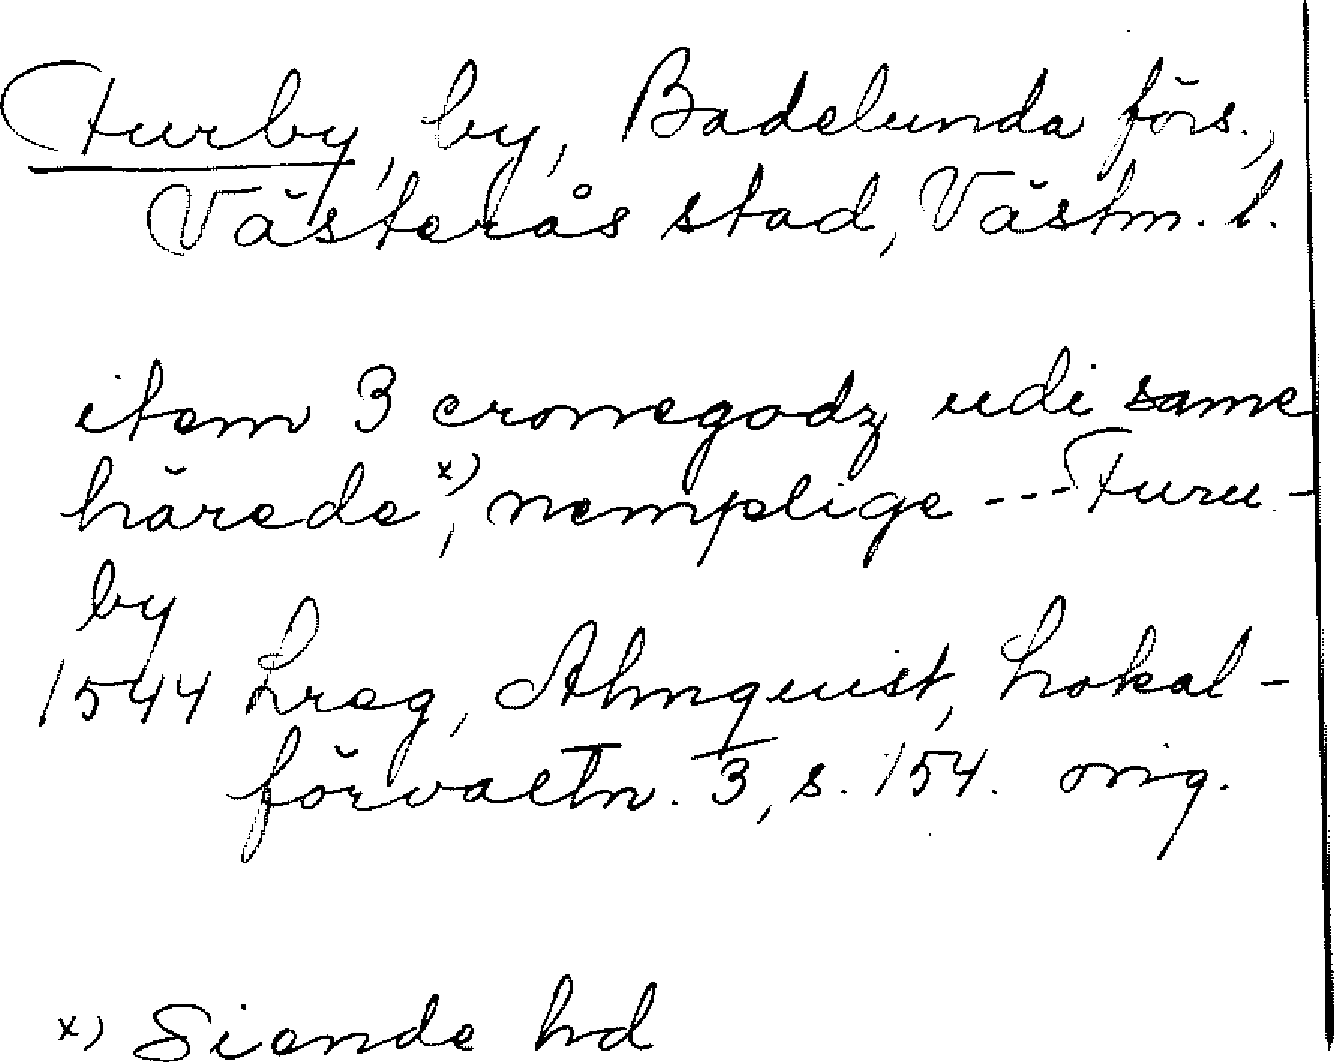 Furby, by, Badelunda förs.,
Västerås stad, Västm. l.
item 3 cronegodz udi same
härede x), nemplige --- Furu-
by
1544 Lreg, Almquist, Lokal-
förvaltn. 3, s. 154. orig.
x) Siende hd